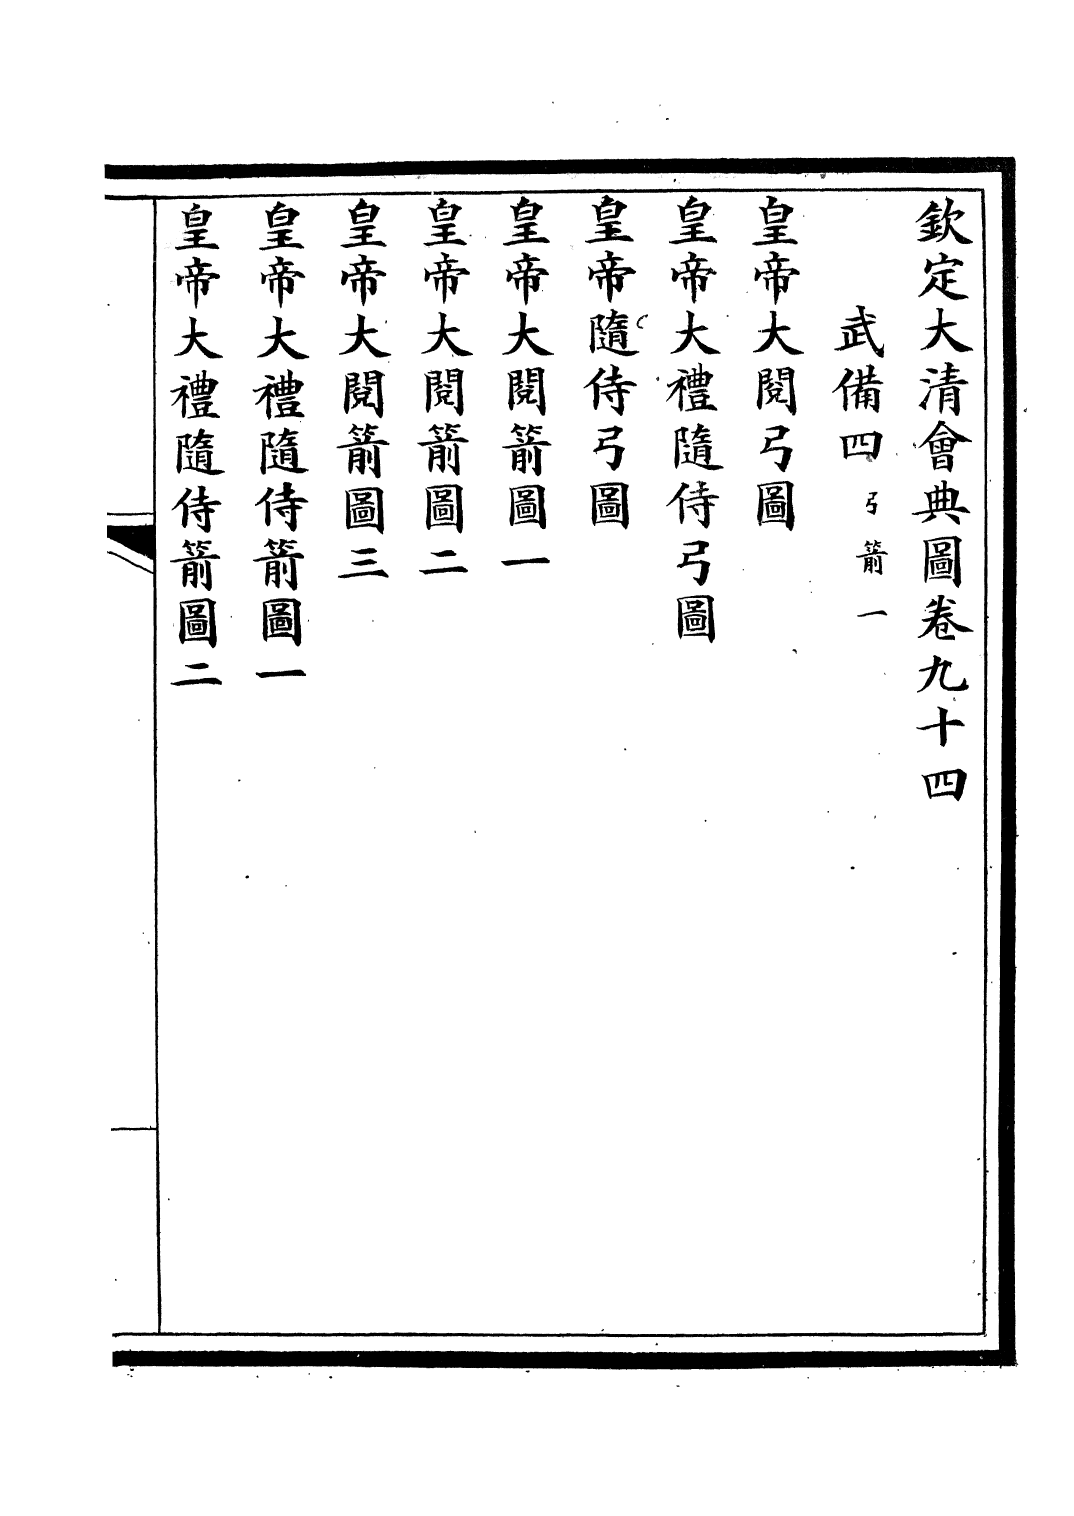 欽定大清會典圖卷九十四
武備四 弓箭一
皇帝大閱弓圖
皇帝大禮隨侍弓圖
皇帝隨侍弓圖
皇帝大閱箭圖一
皇帝大閱箭圖二
皇帝大閱箭圖三
皇帝大禮隨侍箭圖一
皇帝大禮隨侍箭圖二